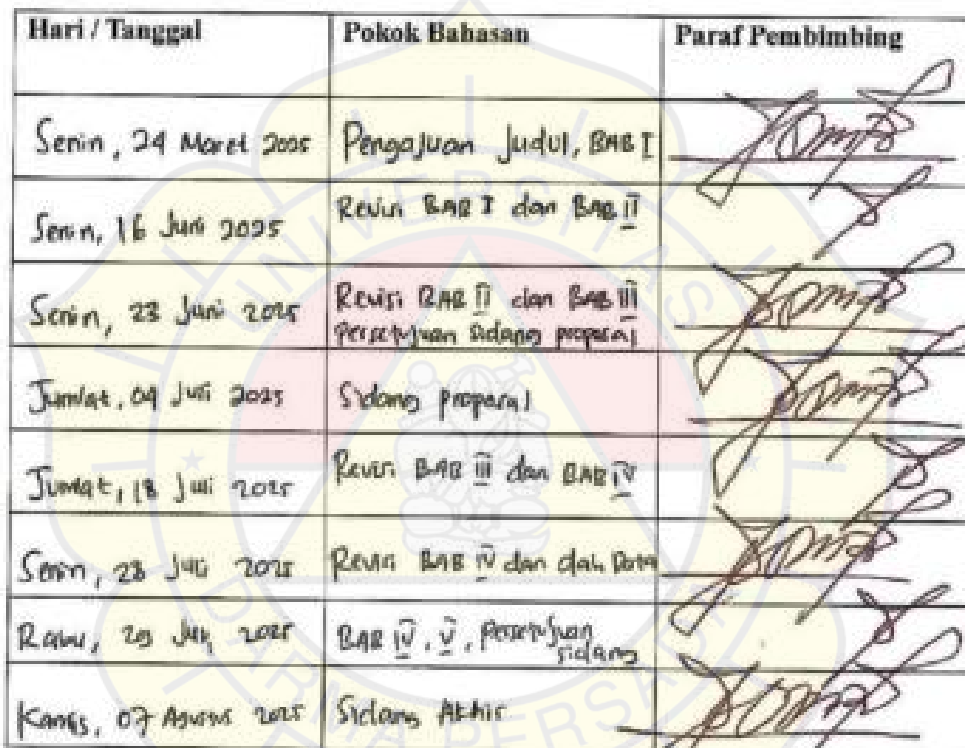 Hari / Tanggal
Pokok Bahasan
Paraf Pembimbing
Senin, 24 Maret 2025
Pengajuan Judul, BAB I
Senin, 16 Juni 2025
Revisi BAB I dan BAB II
Senin, 23 Juni 2025
Revisi BAB II dan BAB III
Persetujuan sidang proposal
Jumlat, 04 Juli 2025
Sidang proposal
Jumlat, 18 Juli 2025
Revisi BAB III dan BAB IV
Senin, 28 Juli 2025
Revisi BAB IV dan Data
Rabu, Juli 2025
BAB IV, V, Persetujuan
sidang
Kamis, 07 Agustus 2025
Sidang Akhir
UNIVERSITAS
DARMA PERSADA